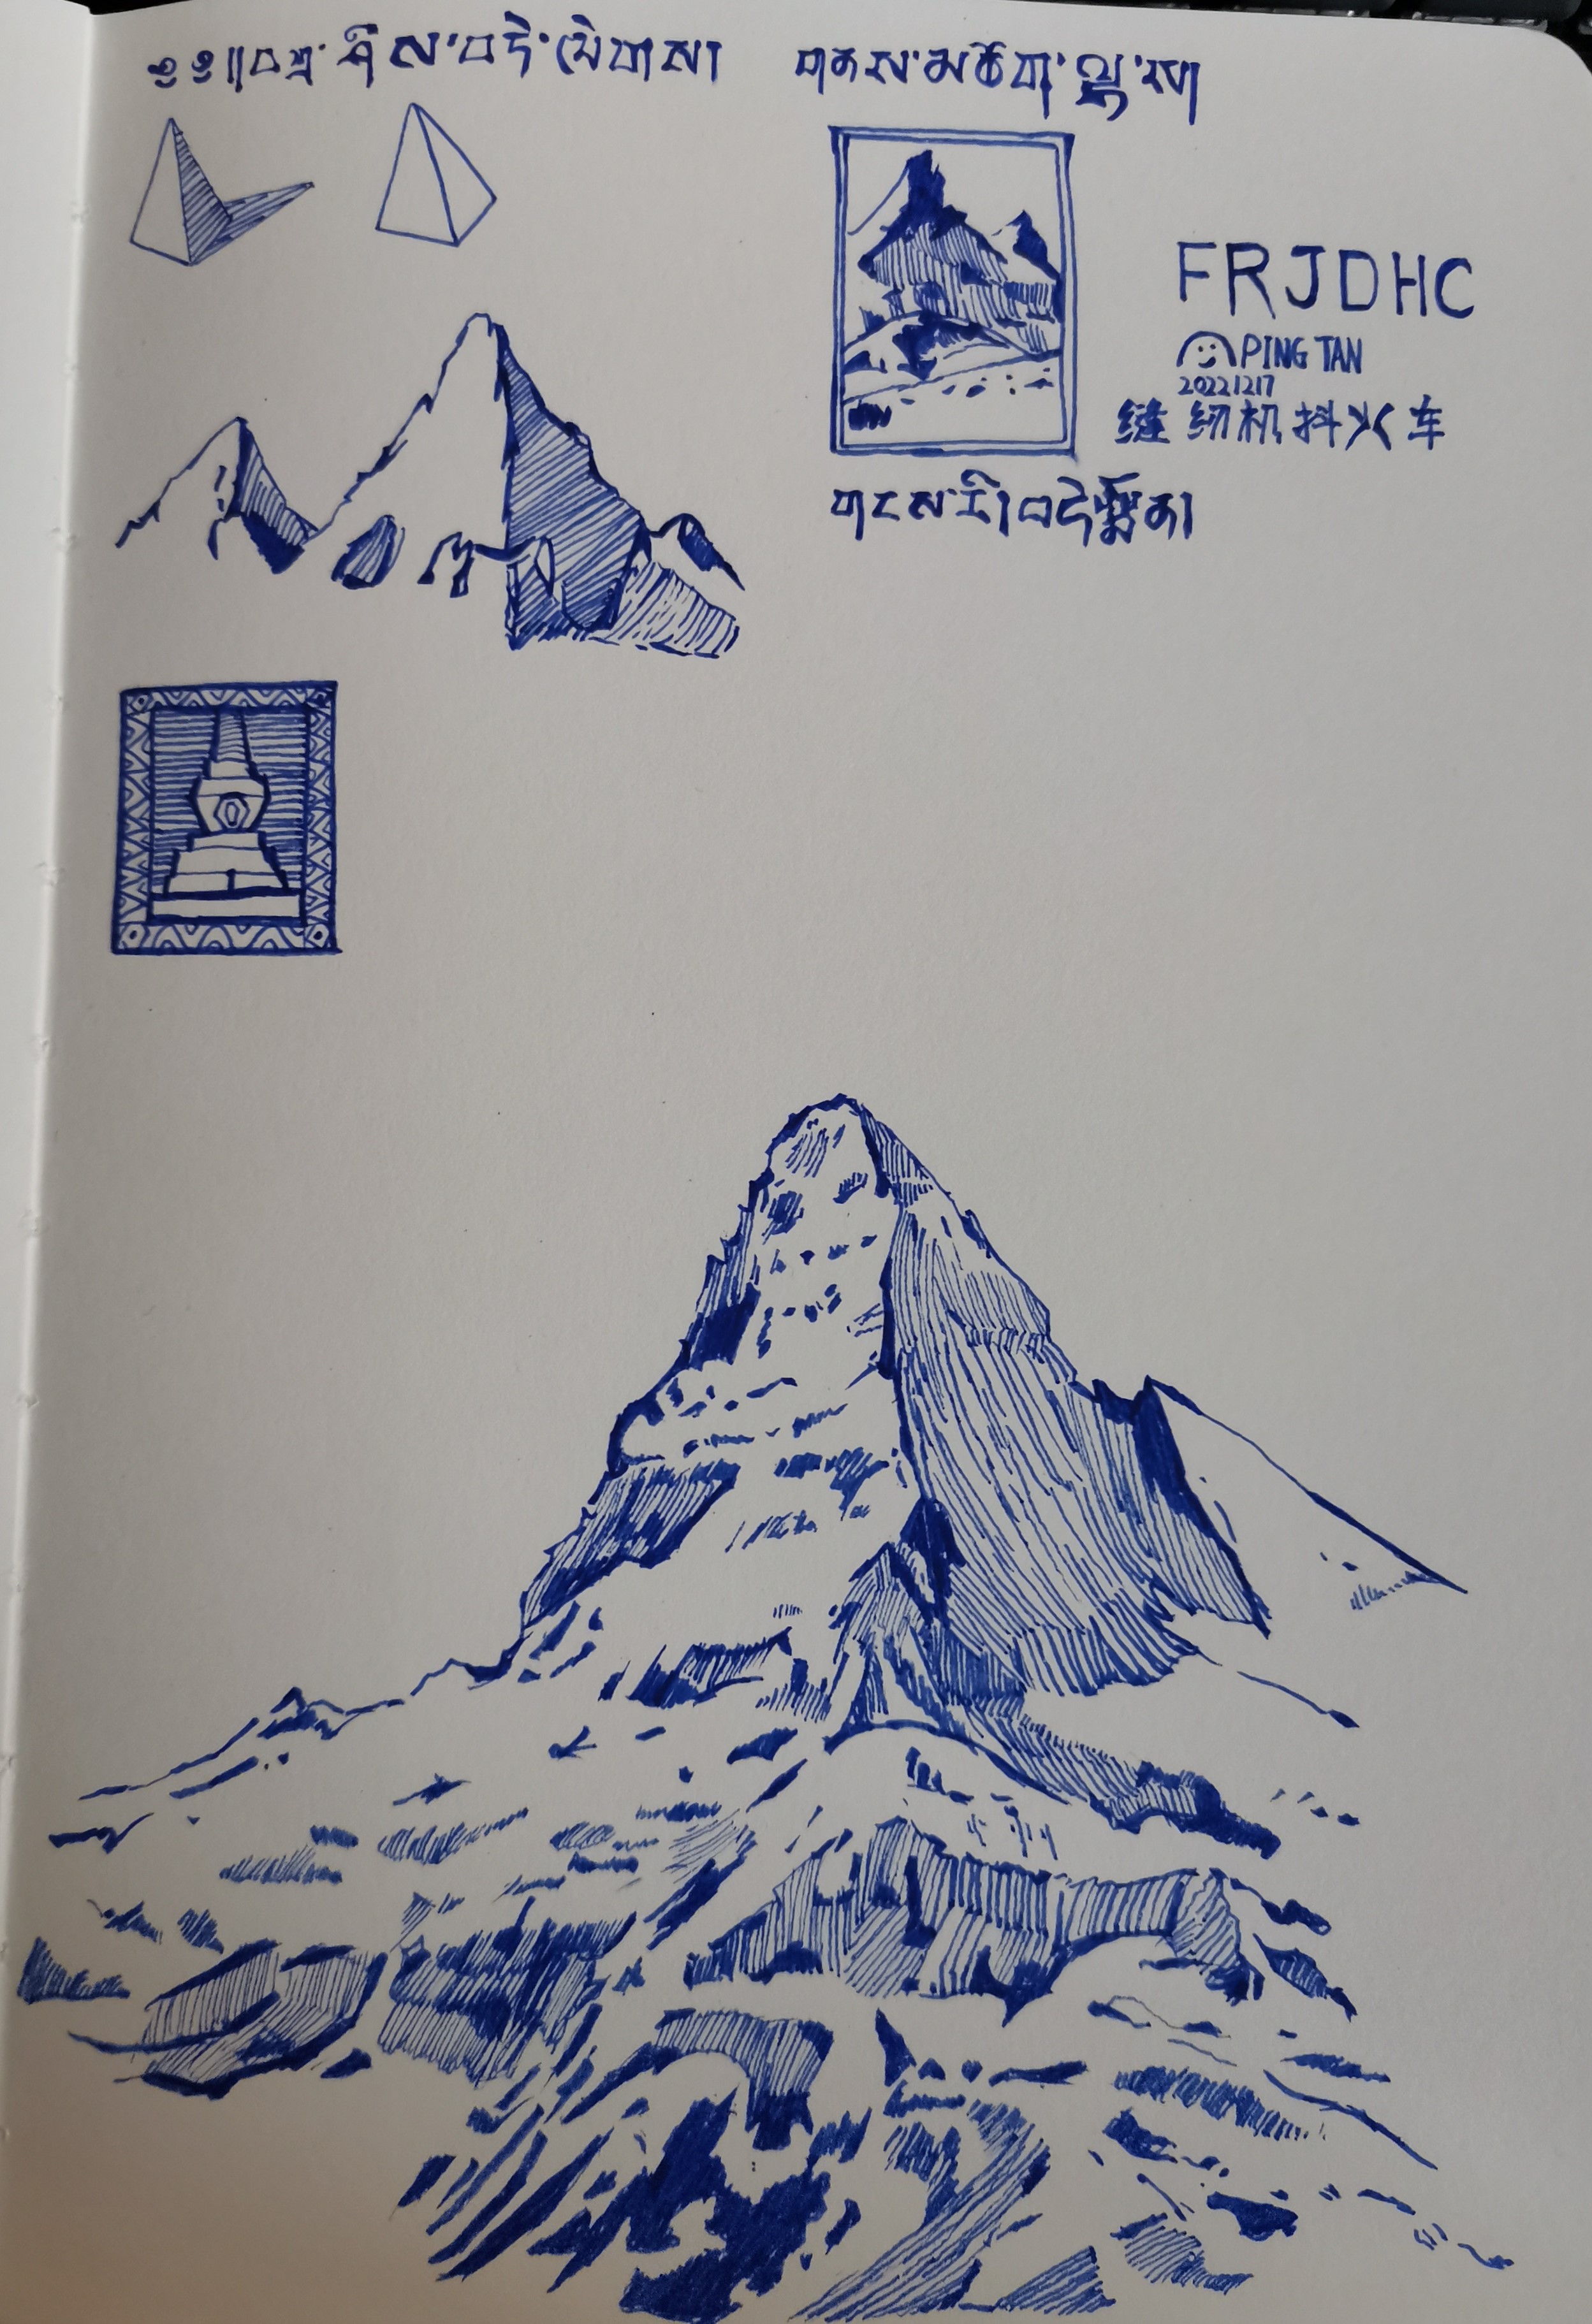 ༄༅།།བཀྲ་ཤིས་བདེ་ལེགས།
གནས་མཆོག་ལྷ་ས།
FRJDHC
PING TAN
20221217
缝纫机抖火车
གངས་རི་